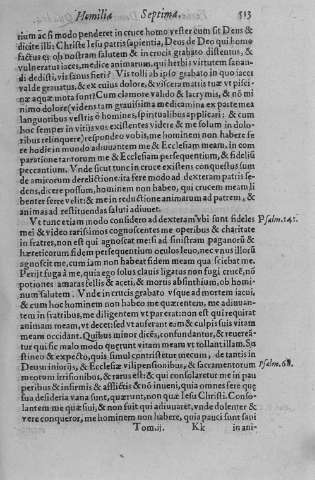 Homilia Septima. 513
tiam ac si modo penderet in cruce homo vester cum sit Deus &
dicite illi Christe Iesu patris sapientia, Deus de Deo qui homo
factus es ob nostram salutem & in crucis grabato distentus, &
vulneratus iaces, medice animarum, qui herbis virtutem sanan-
di dedisti, vis sanus fieri? Vis tolli ab ipso grabato in quo iaces
valde grauatus, & ex cuius dolore, & viscera matris tuæ vt pisci-
næ aquæ mota sunt? Cum clamore valido & lacrymis, & nõ mi-
nimo dolore (videns tam grauissima medicamina ex pastemea
languoribus vestris õ homines, spiritualibus applicari: & cum
hoc semper in vitijs vos existentes videre & me solum in dolo-
ribus relinquere) respondeo vobis, me hominem non habere fe
re hodie in mundo adiuuantem me & Ecclesiam meam, in com
paratione tantorum me & Ecclesiam persequentium, & fidelitã
peccantium. Vnde sicut tunc in cruce existens conquestus sum
de amicorum derelictione: ita fere modo ad dexteram patris se-
dens, dicere possum, hominem non habeo, qui crucem meam li
benter ferre velit: & me in reductione animarum ad patrem, &
animas ad restituendas saluti adiuuet.
Vt tunc etiam modo considero ad dexteram Vbi sunt fideles Psalm.141.
mei & video rarissimos cognoscentes me operibus & charitate
in fratres, non est qui agnoscat me: si ad sinistram paganorũ &
hæreticorum fidem persequentium oculos leuo, nec vnus illorũ
agnoscit me, cum iam non habeat fidem meam qua sciebat me.
Perijt fuga à me, quia ego solus clauis ligatus non fugi crucẽ, nõ
potiones amaras fellis & aceti, & mortis absinthium, ob homi-
num salutem. Vnde in crucis grabato vsque ad mortem iacui,
& cum hoc hominem non habeo me quærentem, me adiuuan-
tem in fratribus, me diligentem vt parerat: non est qui requirat
animam meam, vt decet: sed vt auferant eam & culpis suis vitam
meam occidant. Quibus minor dicẽs, confundantur, & reuereã-
tur qui sic malo modo quærunt vitam meam vt tollant illam. Su
stineo & expecto, quis simul contristetur mecum, de tantis in
Deum iniurijs, & Ecclesiæ vilipensionibus, & sacramentorum Psalm.68.
meorum irrisionibus, & rarus est: & qui consolaretur me in pau
peribus & infirmis & afflictis & nõ inueni, quia omnes fere quę
sua desideria vana sunt, quærunt, non quæ Iesu Christi. Conso-
lantem me quæsiui, & non fuit qui adiuuaret, vnde dolenter &
vere conqueror, me hominem non habere, quia pauci sunt saui
Tom.ij. Kk in ani-